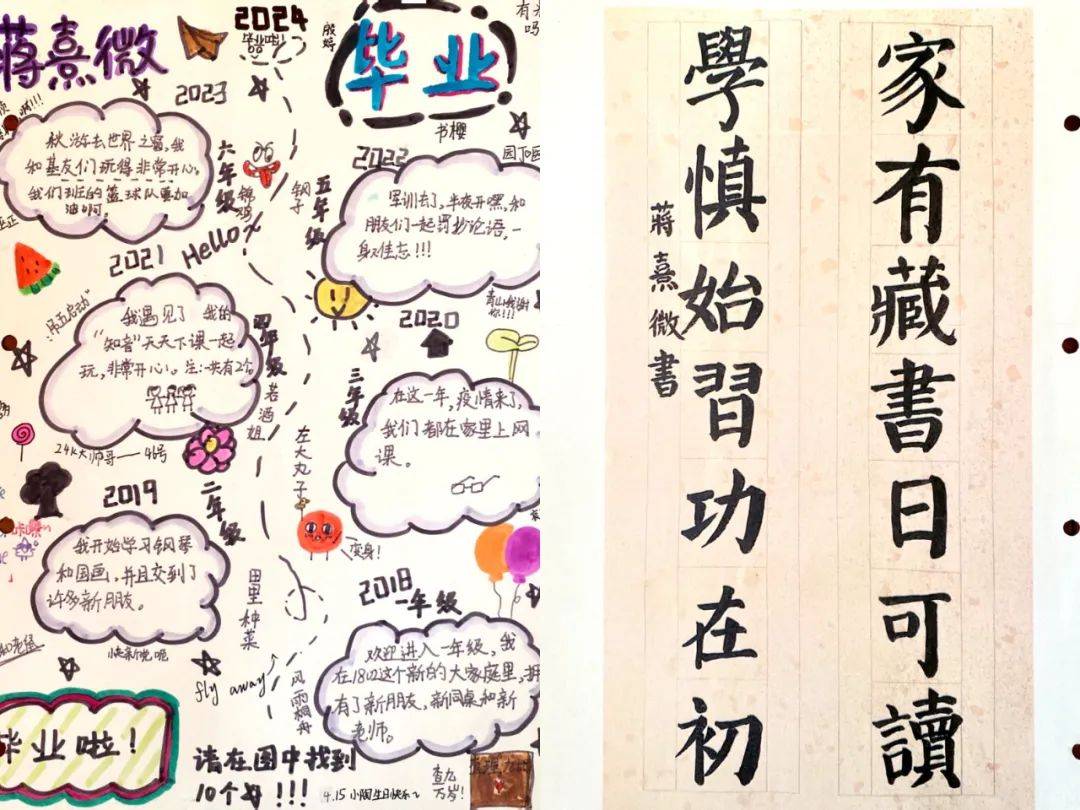 蒋熹微
2024
毕业啦!
毕业
书樱
2023
六年级
秋游去世界之窗,我
和基友们玩得非常开心,
我们班的篮球队要加
油啊。
2022
五年级
军训去了,半夜开嘿,和
朋友们一起罚抄论语,一
身又佳态!!!
Hello
2021
四年级
我遇见了我的
"知音"天天下课一起
玩,非常开心。注:一共有2个
24K大师哥——46号
2020
三年级
在这一年,疫情来了,
我们都在家里上网
课。
左大丸子
变身!
2019
二年级
我开始学习钢琴
和国画,并且交到了
许多新朋友。
田里种菜
2018
一年级
欢迎进入一年级,我
在1802这个新的大家庭里,拥
有了新朋友,新同桌和新
老师。
fly away
毕业啦!
请在图中找到
10个☆!!!
4.15 小陶生日快乐~
家有藏書日可讀
學慎始習功在初
蔣熹微書